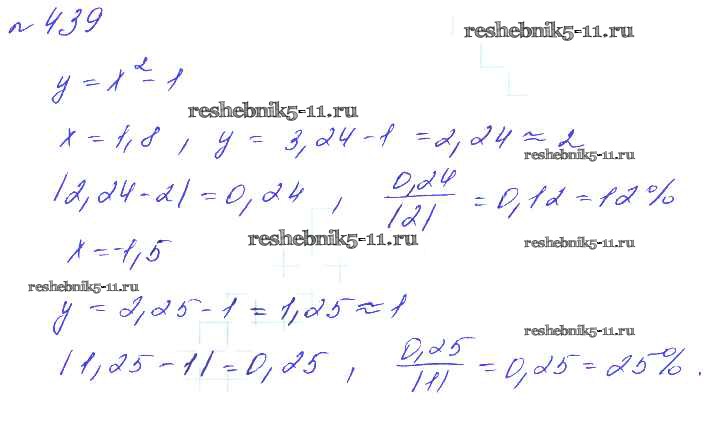 № 439
reshebnik5-11.ru
y = x² - 1
reshebnik5-11.ru
x = 1,8 , y = 3,24 - 1 = 2,24 ≈ 2
reshebnik5-11.ru
|2,24 - 2| = 0,24 , 0,24/|2| = 0,12 = 12%
reshebnik5-11.ru
x = -1,5
reshebnik5-11.ru
reshebnik5-11.ru
y = 2,25 - 1 = 1,25 ≈ 1
reshebnik5-11.ru
|1,25 - 1| = 0,25 , 0,25/|1| = 0,25 = 25% .